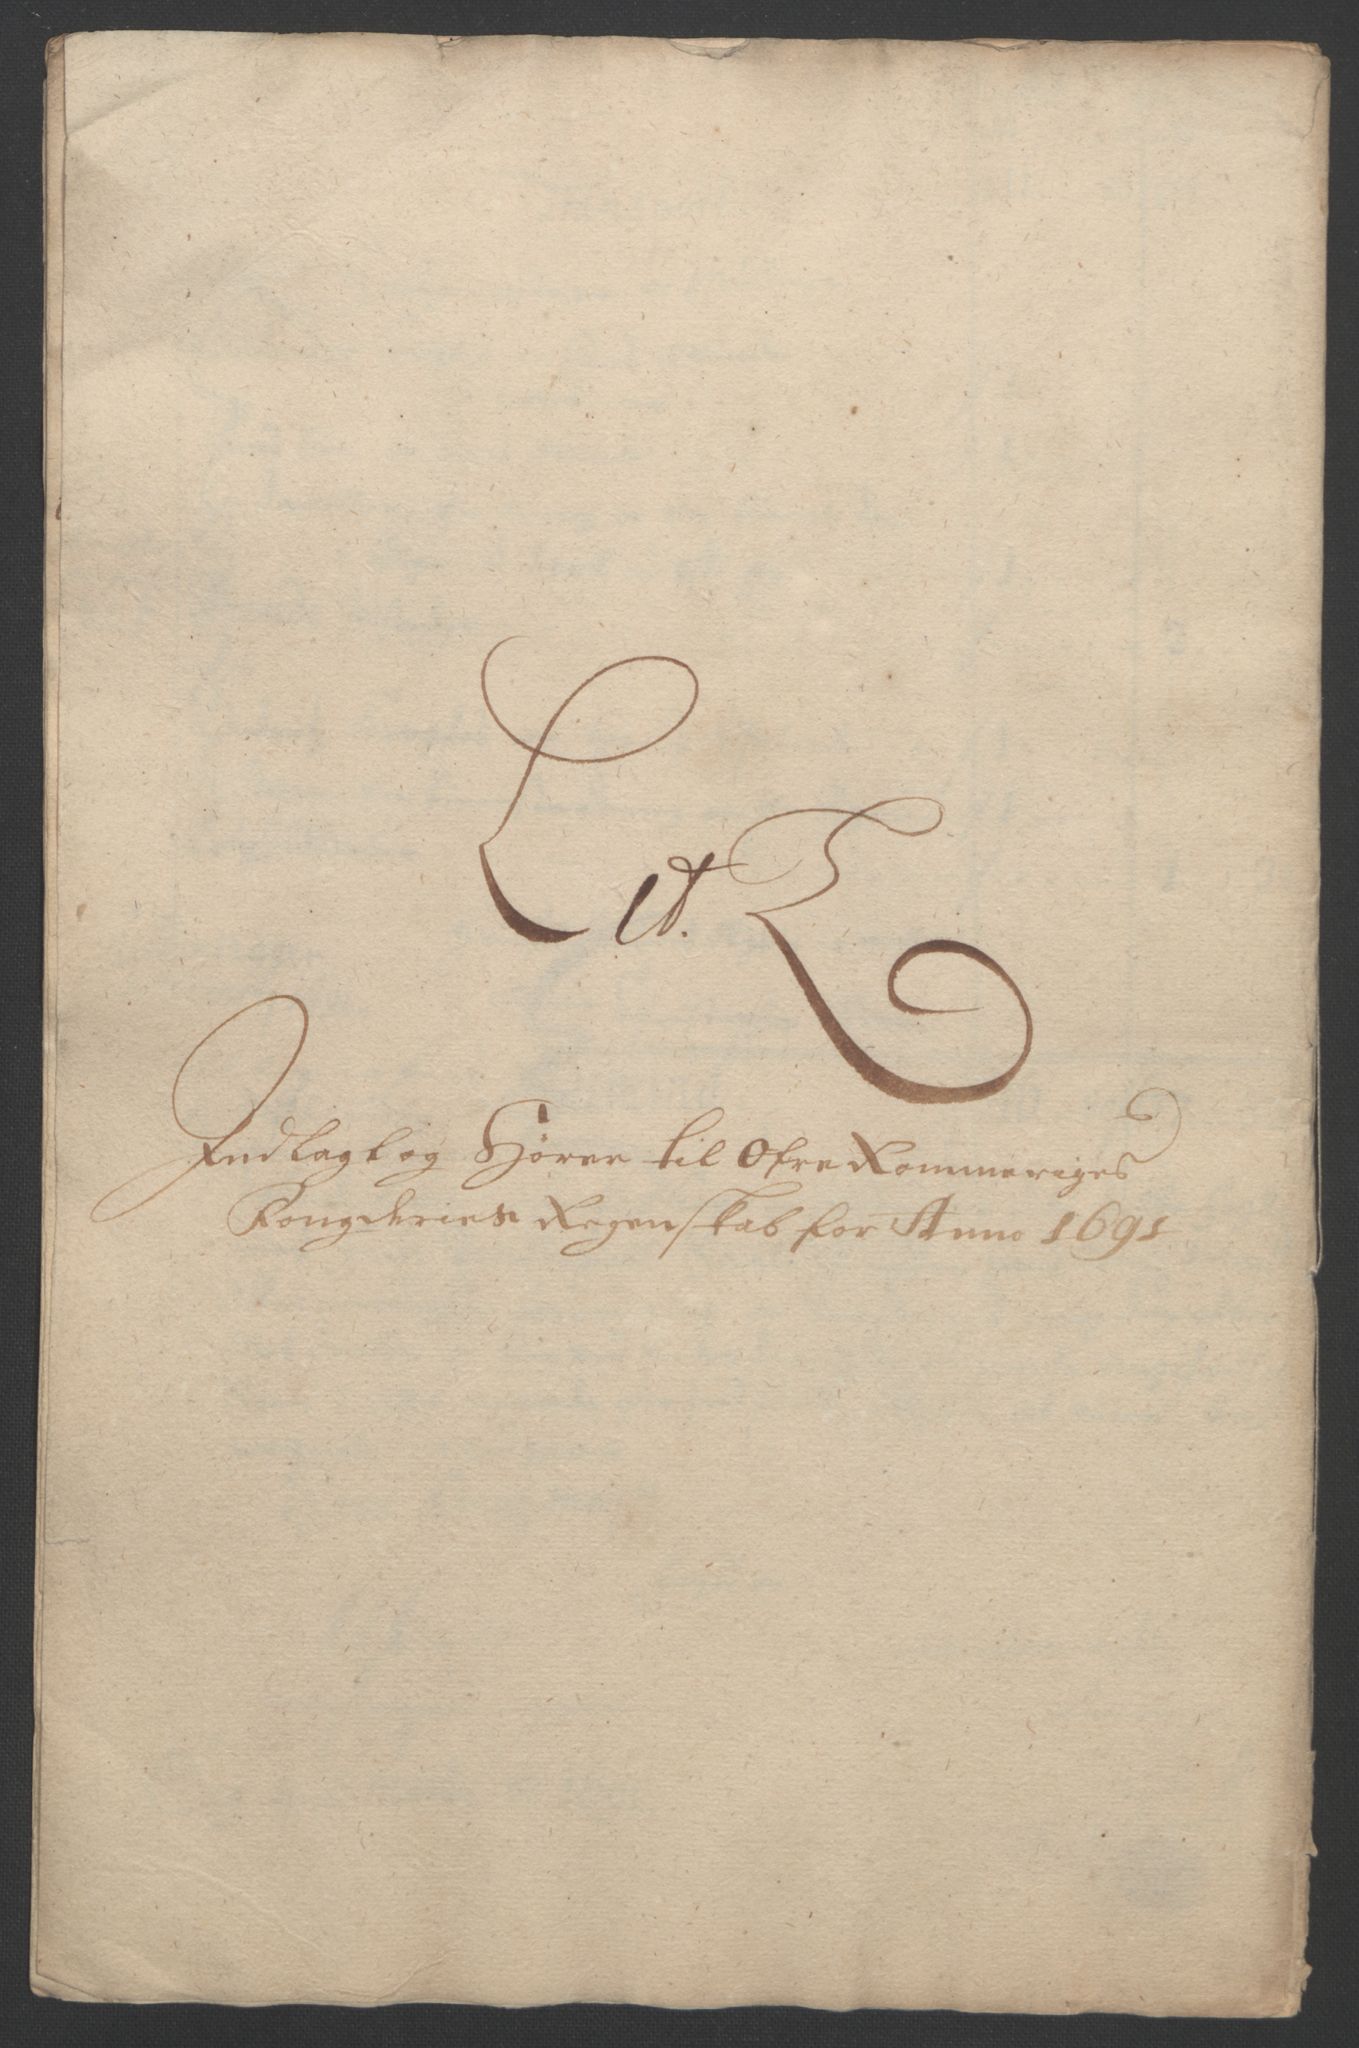 Lit. Z
Indlagt og Hörer til Ofre Rommeriges
Fougderies Regenskab for Anno 1691